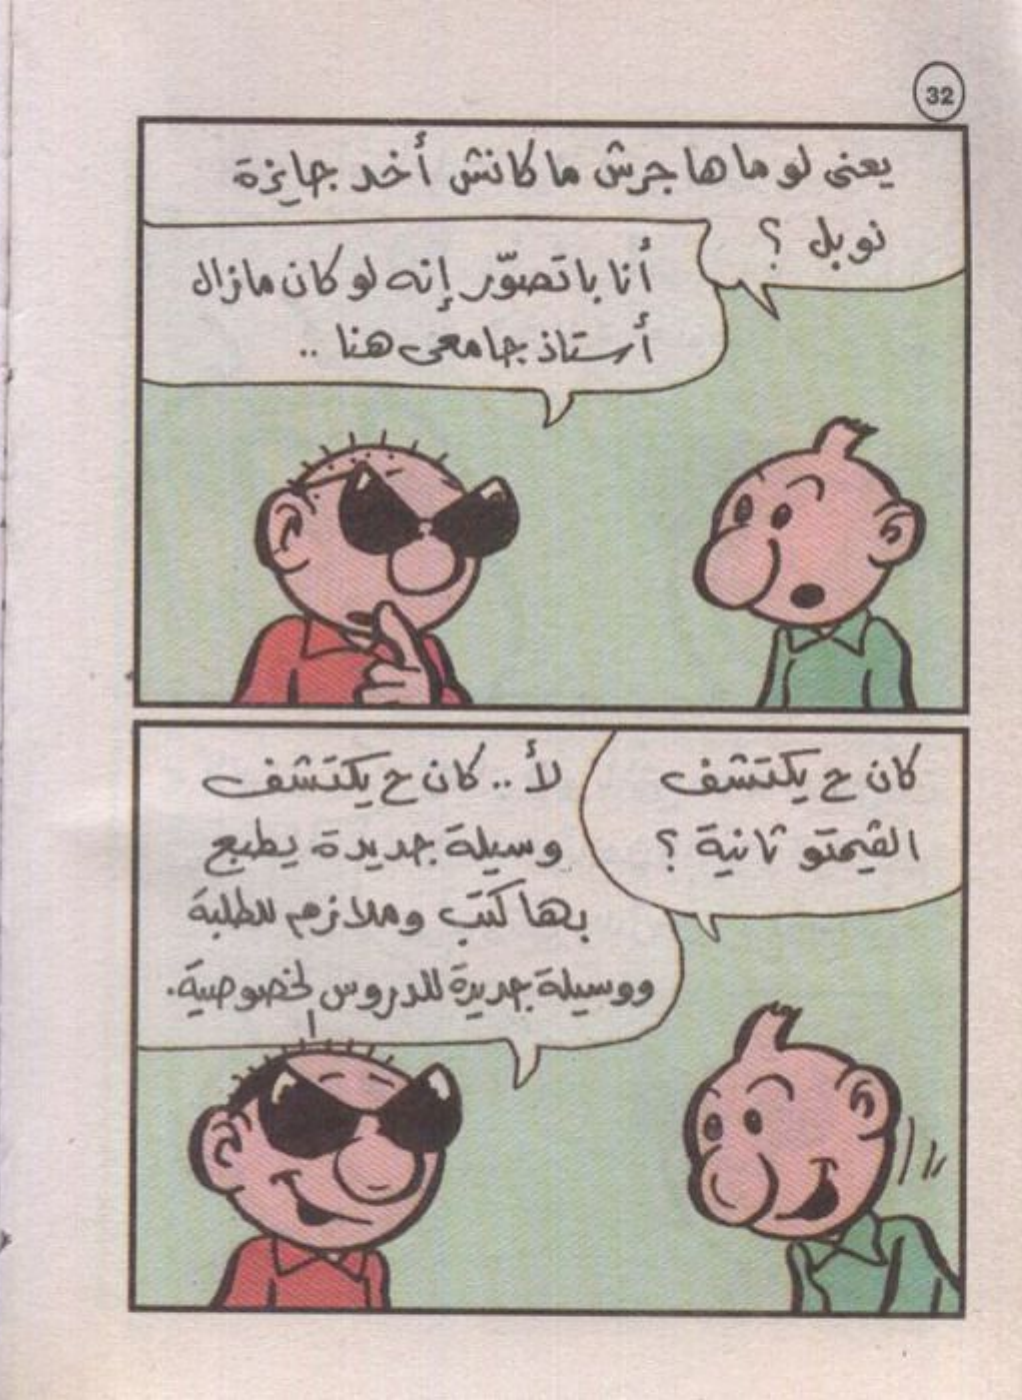 32
يعنى لو ما هاجرش ما كانش أخد جايزة
نوبل ؟
أنا باتصوّر إنه لو كان مازال
أستاذ جامعى هنا ..
كان ح يكتشف
الفيمتو ثانية ؟
لأ .. كان ح يكتشف
وسيلة جديدة يطبع
بها كتب وملازم للطلبة
ووسيلة جديدة للدروس الخصوصية.